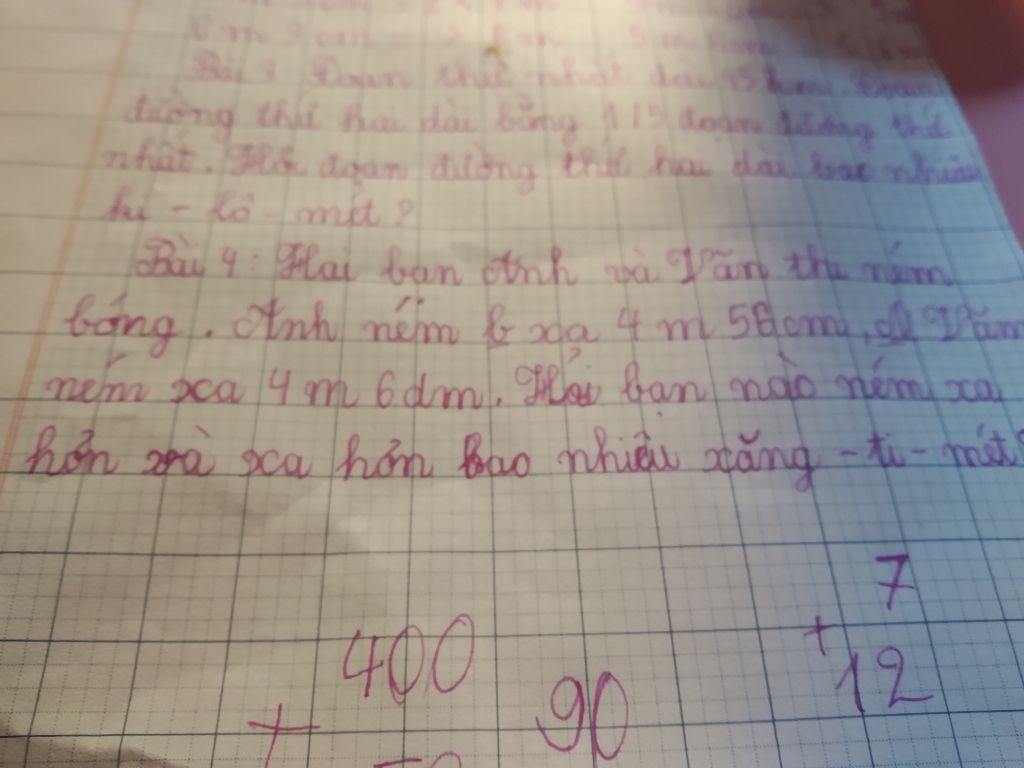 Bài 3 Đoạn thứ nhất dài 45 km. Đoạn
đường thứ hai dài bằng 1/5 đoạn đường thứ
nhất. Hỏi đoạn đường thứ hai dài bao nhiêu
ki - lô - mét?
Bài 4: Hai bạn Anh và Văn thi ném
bóng. Anh ném xa 4 m 50 cm, Văn
ném xa 4 m 6 dm. Hỏi bạn nào ném xa
hơn và xa hơn bao nhiêu xăng - ti - mét?
7
+
12
400
+
90